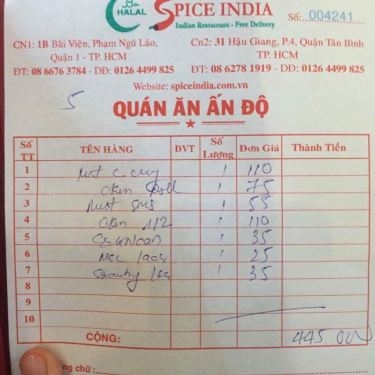 HALAL
SPICE INDIA
Indian Restaurant - Free Delivery
Số: 004241
CN1: 1B Bùi Viện, Phạm Ngũ Lão, Quận 1 - TP. HCM
ĐT: 08 6676 3784 - DĐ: 0126 4499 825
Cn2: 31 Hậu Giang, P.4, Quận Tân Bình - TP. HCM
ĐT: 08 6278 1919 - DĐ: 0126 4499 825
Website: spiceindia.com.vn
5
QUÁN ĂN ẤN ĐỘ
Số TT TÊN HÀNG ĐVT Số Lượng Đơn Giá Thành Tiền
1 1 110
2 Roll 1 75
3 1 55
4 1 110
5 1 35
6 1 25
7 1 35
8
9
10
CỘNG: 445 000
chữ: